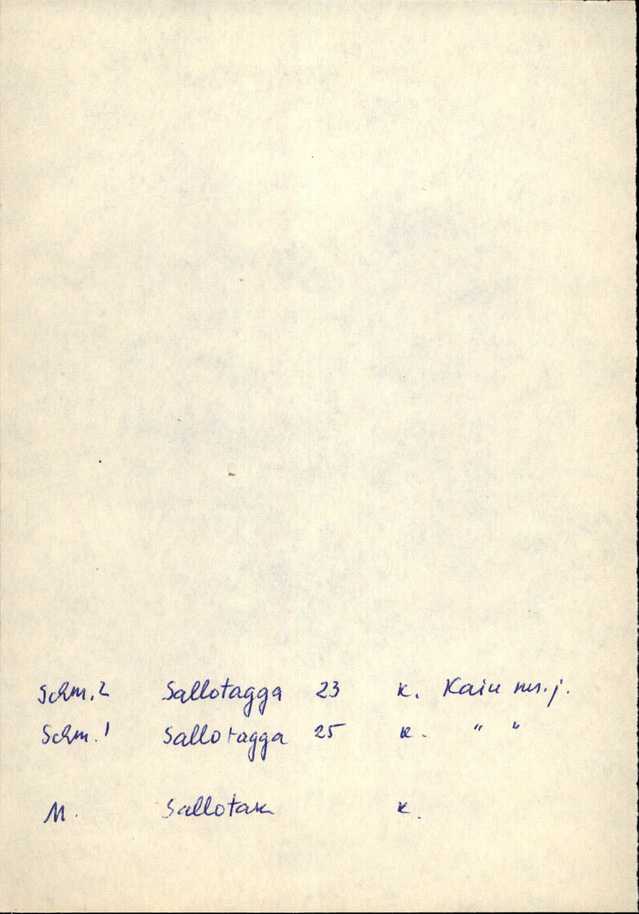 Schm. 2 Sallotagga 23 k. Kaiu ms. j.
Schm. 1 Sallotagga 25 k. " "
M. Sallotak k.